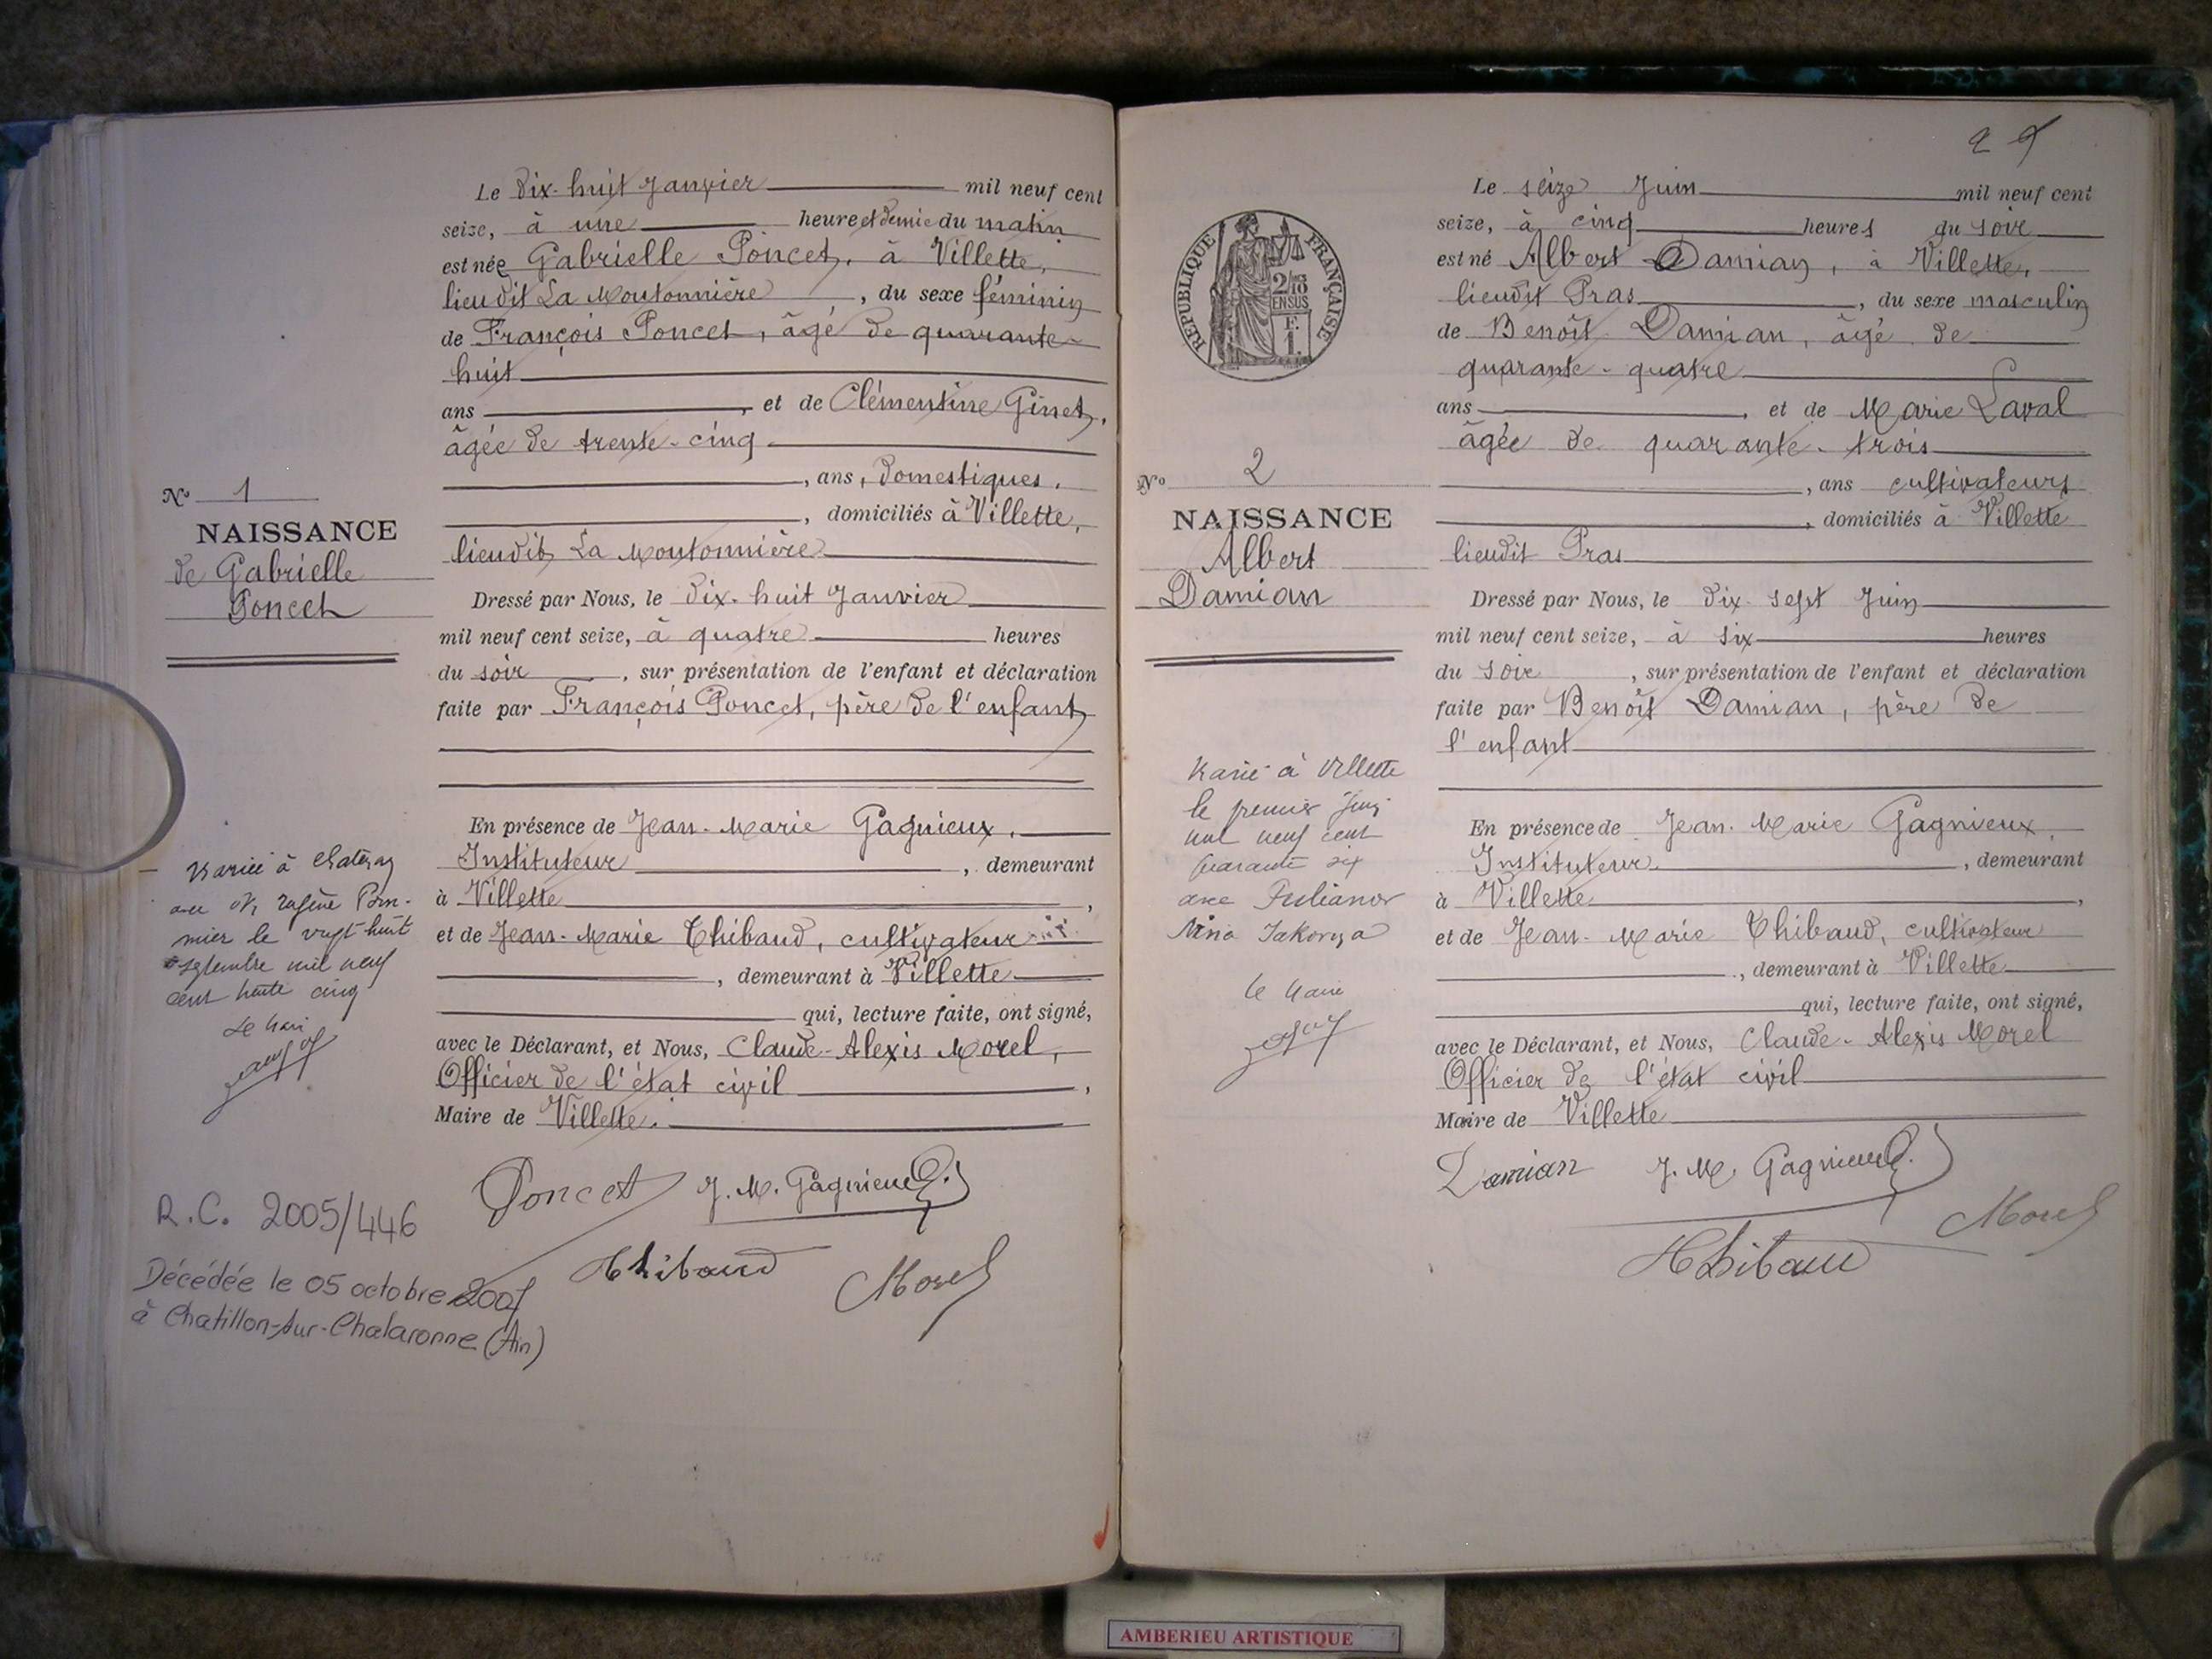 Le Dix-huit Janvier mil neuf cent
seize, à une heure et demie du matin
est née Gabrielle Poncet, à Villette,
lieudit La Moutonnière, du sexe féminin
de François Poncet, âgé de quarante-
huit
ans, et de Clémentine Ginet,
âgée de trente-cinq
, ans, Domestiques,
, domiciliés à Villette,
lieudit La Moutonnière
N° 1
NAISSANCE
de Gabrielle
Poncet
Dressé par Nous, le Dix-huit Janvier
mil neuf cent seize, à quatre heures
du soir, sur présentation de l'enfant et déclaration
faite par François Poncet, père de l'enfant
En présence de Jean-Marie Gagnieux,
Instituteur, demeurant
à Villette,
et de Jean-Marie Thibaud, cultivateur
, demeurant à Villette
qui, lecture faite, ont signé,
avec le Déclarant, et Nous, Claude-Alexis Morel,
Officier de l'état civil,
Maire de Villette.
Mariée à
mier le vingt huit
septembre mil neuf
cent trente cinq
Le Maire
Poncet J. M. Gagnieux
Thibaud Morel
R.C. 2005/446
Décédée le 05 octobre
à Chatillon-sur-Chalaronne (Ain)
RÉPUBLIQUE FRANÇAISE
2/10
EN SUS
F.
1.
Le seize Juin mil neuf cent
seize, à cinq heures du soir
est né Albert Damian, à Villette,
lieudit Pras, du sexe masculin
de Benoît Damian, âgé de
quarante-quatre
ans, et de Marie Laval
âgée de quarante-trois
, ans cultivateurs
, domiciliés à Villette
lieudit Pras
N° 2
NAISSANCE
Albert
Damian
Dressé par Nous, le Dix-sept Juin
mil neuf cent seize, à six heures
du soir, sur présentation de l'enfant et déclaration
faite par Benoît Damian, père de
l'enfant
En présence de Jean-Marie Gagnieux,
Instituteur, demeurant
à Villette,
et de Jean-Marie Thibaud, cultivateur
, demeurant à Villette
qui, lecture faite, ont signé,
avec le Déclarant, et Nous, Claude-Alexis Morel
Officier de l'état civil
Maire de Villette
Marié à Villette
le premier
mil neuf cent
quarante six
avec
Nina
Le Maire
Damian J. M. Gagnieux
Thibaud Morel
AMBERIEU ARTISTIQUE